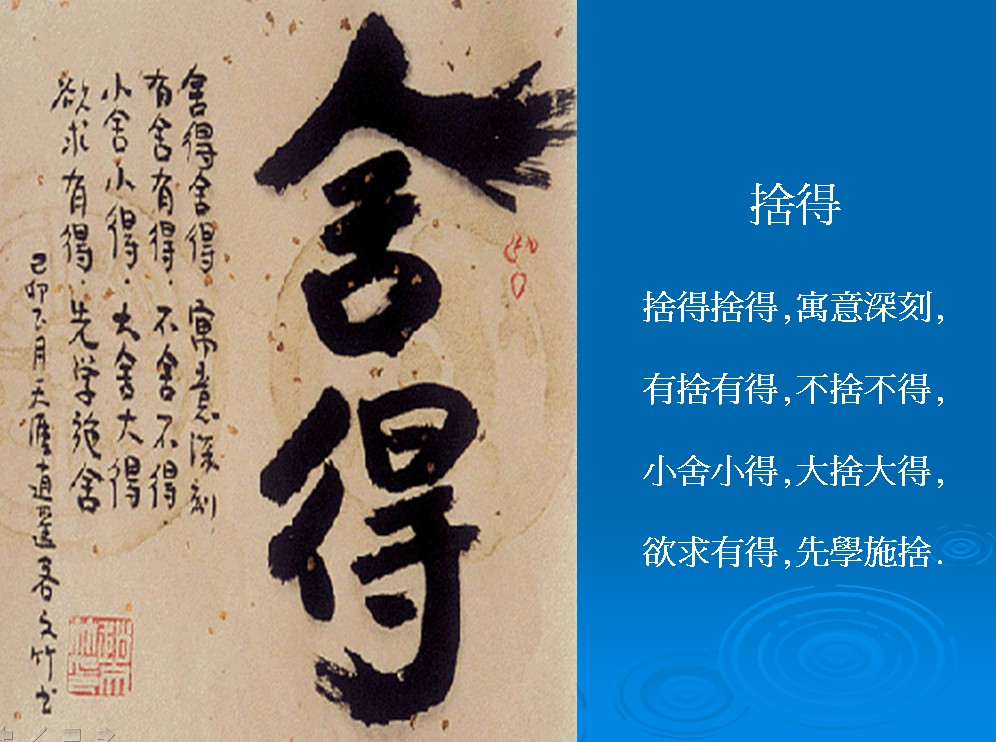 舍得
舍得舍得．寓意深刻
有舍有得．不舍不得．
小舍小得．大舍大得
欲求有得．先学施舍
己卯
月天涯逍遥客文竹书
捨得
捨得捨得,寓意深刻,
有捨有得,不捨不得,
小舍小得,大捨大得,
欲求有得,先學施捨.